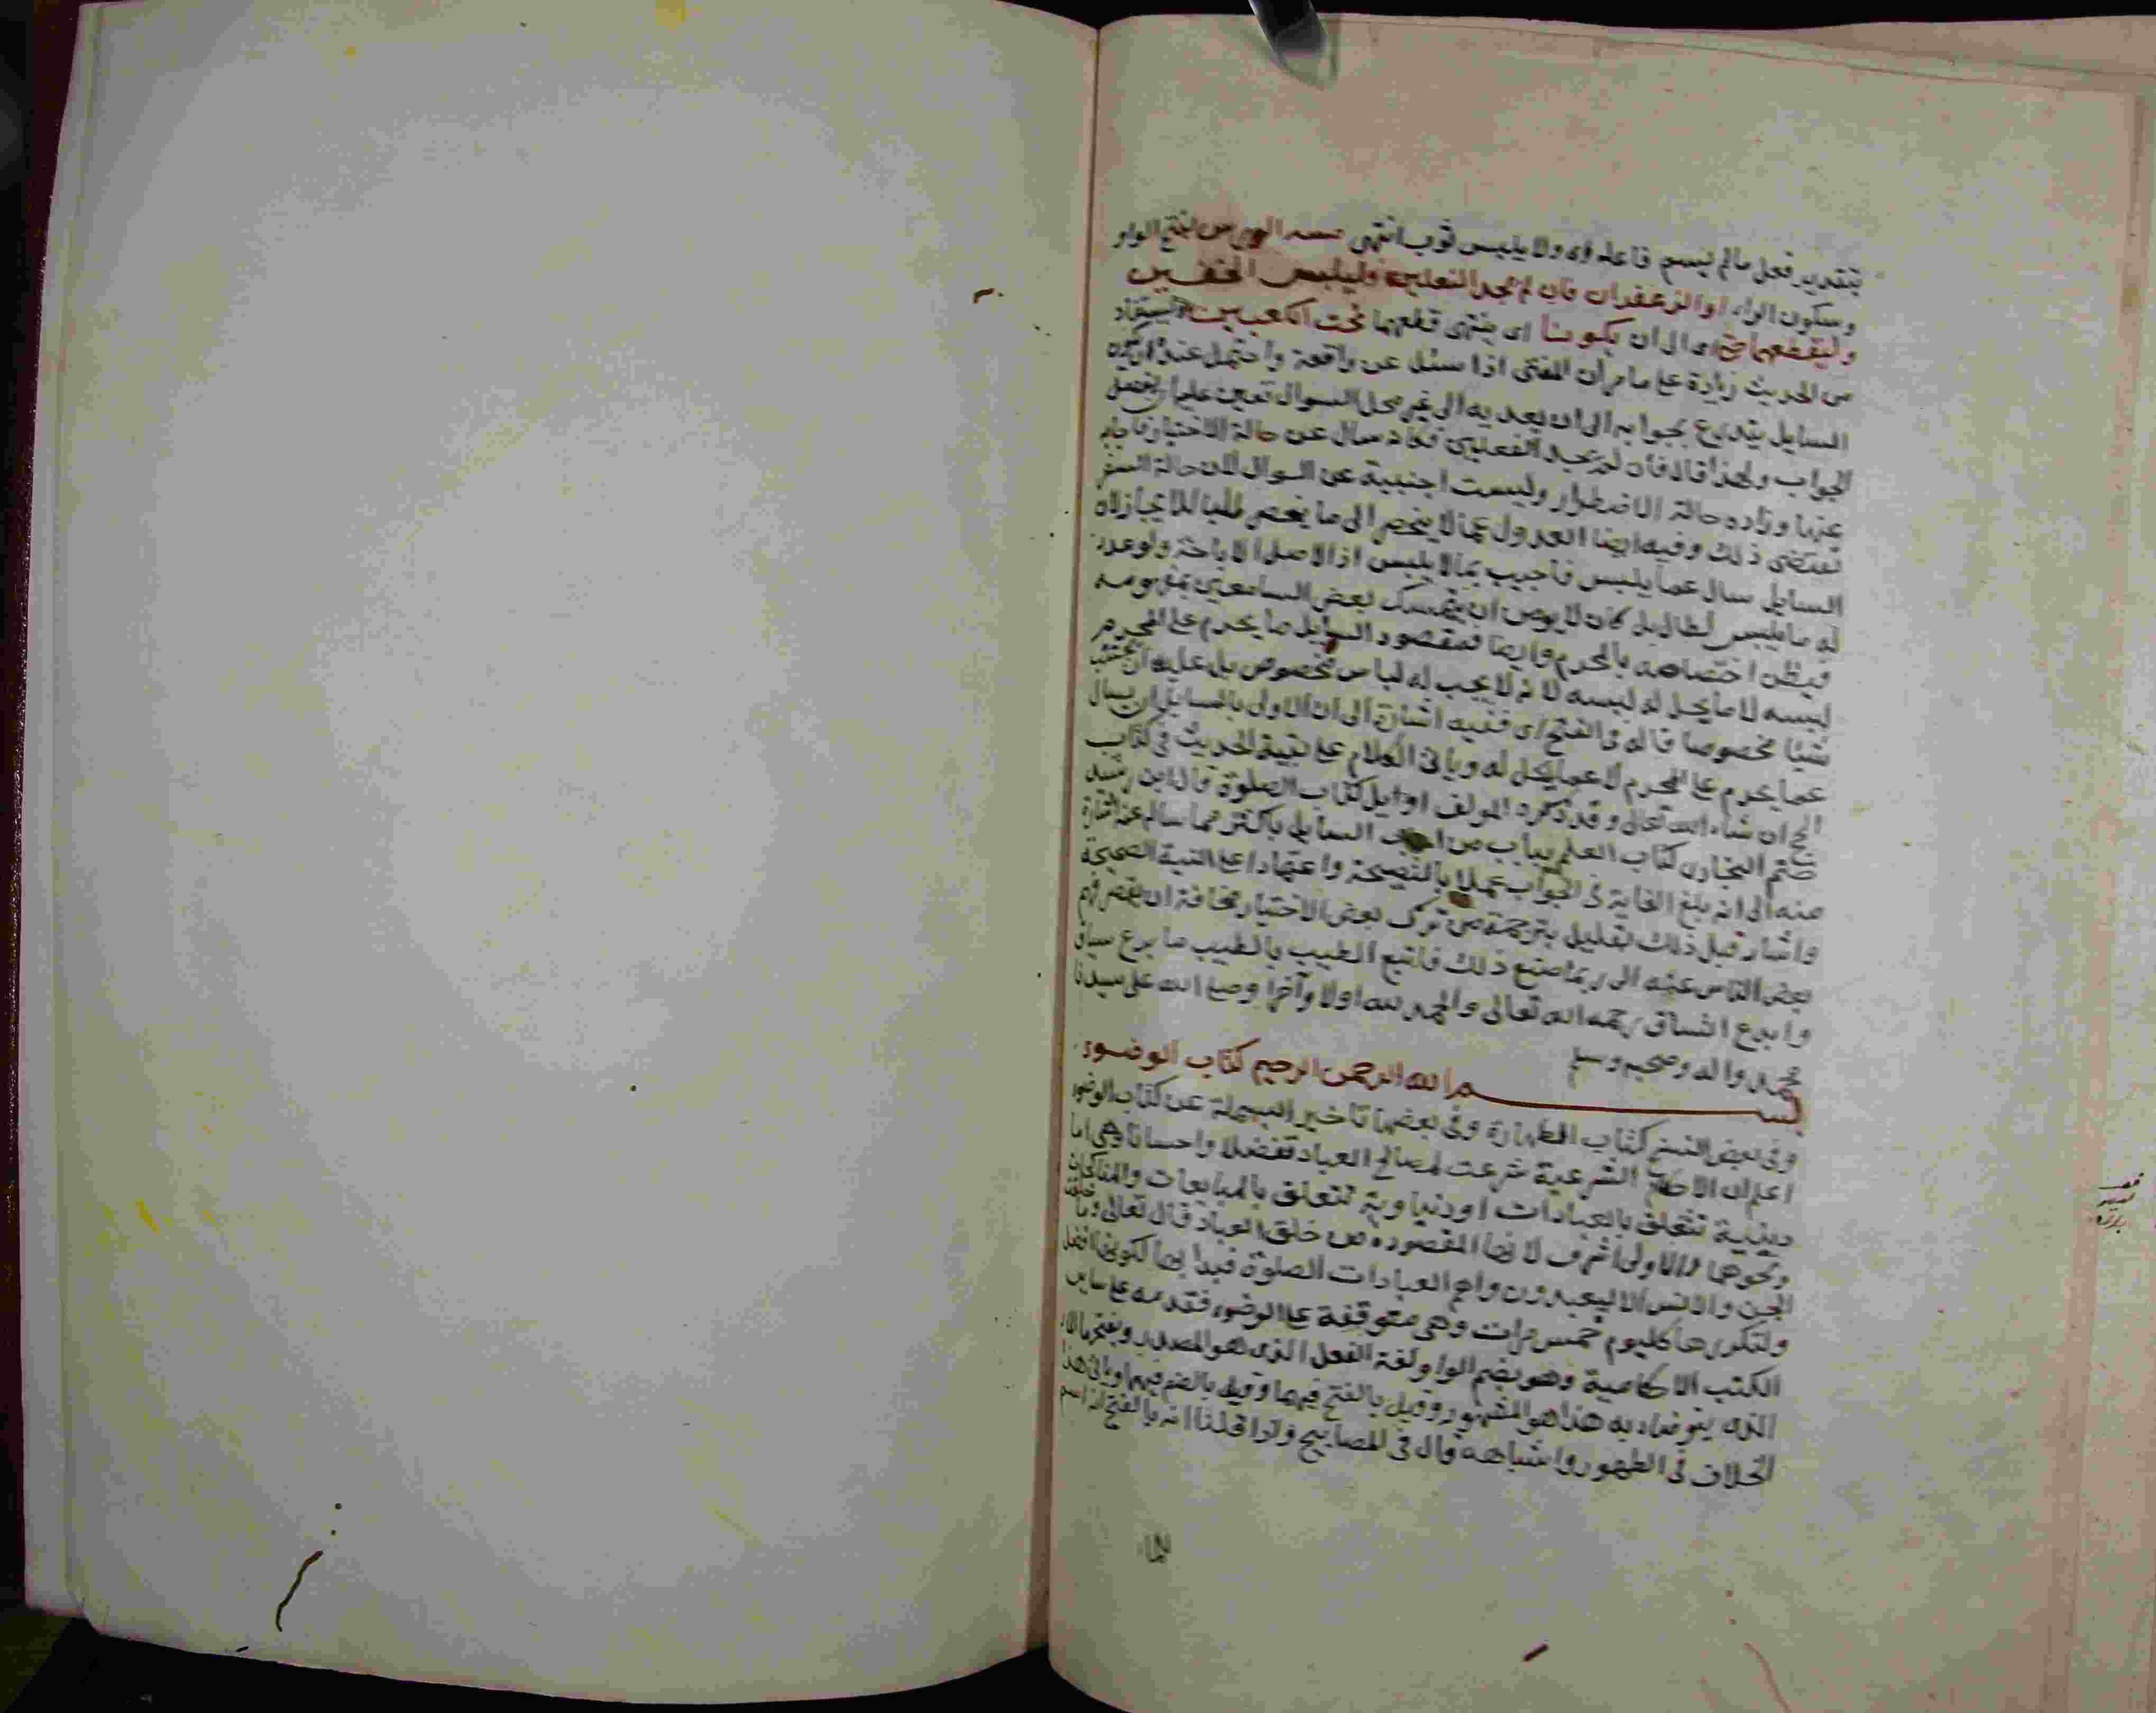 بتقدير فعل ما لم يسم فاعله اى ولا يلبس ثوب انتهى مسه الورس بفتح الواو
وسكون الراء او الزعفران فان لم يجد النعلين فليلبس الخفين
وليقطعهما حتى اى الى ان يكونا اى ينتهى قطعهما تحت الكعبين يستفاد
من الحديث زيادة على ما مر ان المفتى اذا سئل عن واقعة واحتمل عنده ان يكون
السايل يتدرع بجوابه الى ان يعديه الى غير محل السوال تعين عليه ان يفصل
الجواب ولهذا قال فان لم يجد النعلين فكانه سال عن حالة الاختيار فاجابه
عنها وزاده حالة الاضطرار وليست اجنبية عن السوال لان حالة السفر
تقتضى ذلك وفيه ايضا العدول عما لا ينحصر الى ما ينحصر طلبا للايجاز لان
السايل سال عما يلبس فاجيب بما لا يلبس اذ الاصل الاباحة ولو عدد
له ما يلبس لطال بل كان لا يومن ان يتمسك بعض السامعين بمفهومه
فيظن اختصاصه بالمحرم وايضا فمقصود السايل ما يحرم على المحرم
لبسه لا ما يحل له لبسه لانه لا يجب له لباس مخصوص بل عليه ان يجتنب
شيئا مخصوصا قاله فى الفتح اى ففيه اشارة الى ان الاولى بالسايل ان يسال
عما يحرم على المحرم لا عما يحل له وياتى الكلام على بقية الحديث فى كتاب
الحج ان شاء الله تعالى وقد ذكره المولف اوايل كتاب الصلوة قال ابن رشيد
ختم البخارى كتاب العلم بباب من اجاب السايل باكثر مما ساله عنه اشارة
منه الى انه بلغ الغاية فى الجواب عملا بالنصيحة واعتمادا على النية الصحيحة
واشار قبل ذلك بقليل بترجمة من ترك بعض الاختيار مخافة ان يقصر فهم
بعض الناس عنه الى ربما صنع ذلك فاتبع الطيب بالطيب ما برع سياق
وابدع اتساق رحمه الله تعالى والحمد لله اولا وآخرا وصلى الله على سيدنا
محمد واله وصحبه وسلم
بسم الله الرحمن الرحيم كتاب الوضوء
وفى بعض النسخ كتاب الطهارة وفى بعضها تاخير البسملة عن كتاب الوضوء
اعلم ان الاحكام الشرعية شرعت لمصالح العباد تفضلا واحسانا وهى اما
دينية تتعلق بالعبادات او دنياوية تتعلق بالمبايعات والمناكحات
ونحوهما والاولى اشرف لانها المقصودة من خلق العباد قال تعالى وما خلقت
الجن والانس الا ليعبدون واهم العبادات الصلوة فبدا بها لكونها افضل
ولتكررها كل يوم خمس مرات وهى متوقفة على الوضوء فقدمه على ساير
الكتب الاحكامية وهو بضم الواو لغة الفعل الذى هو المصدر وبفتحها الماء
الذى يتوضاء به هذا هو المشهور وقيل بالفتح فيهما وقيل بالضم فيهما وياتى هذا
الخلاف فى الطهور واشباهه قال فى المصابيح واذا قلنا انه بالفتح انه اسم